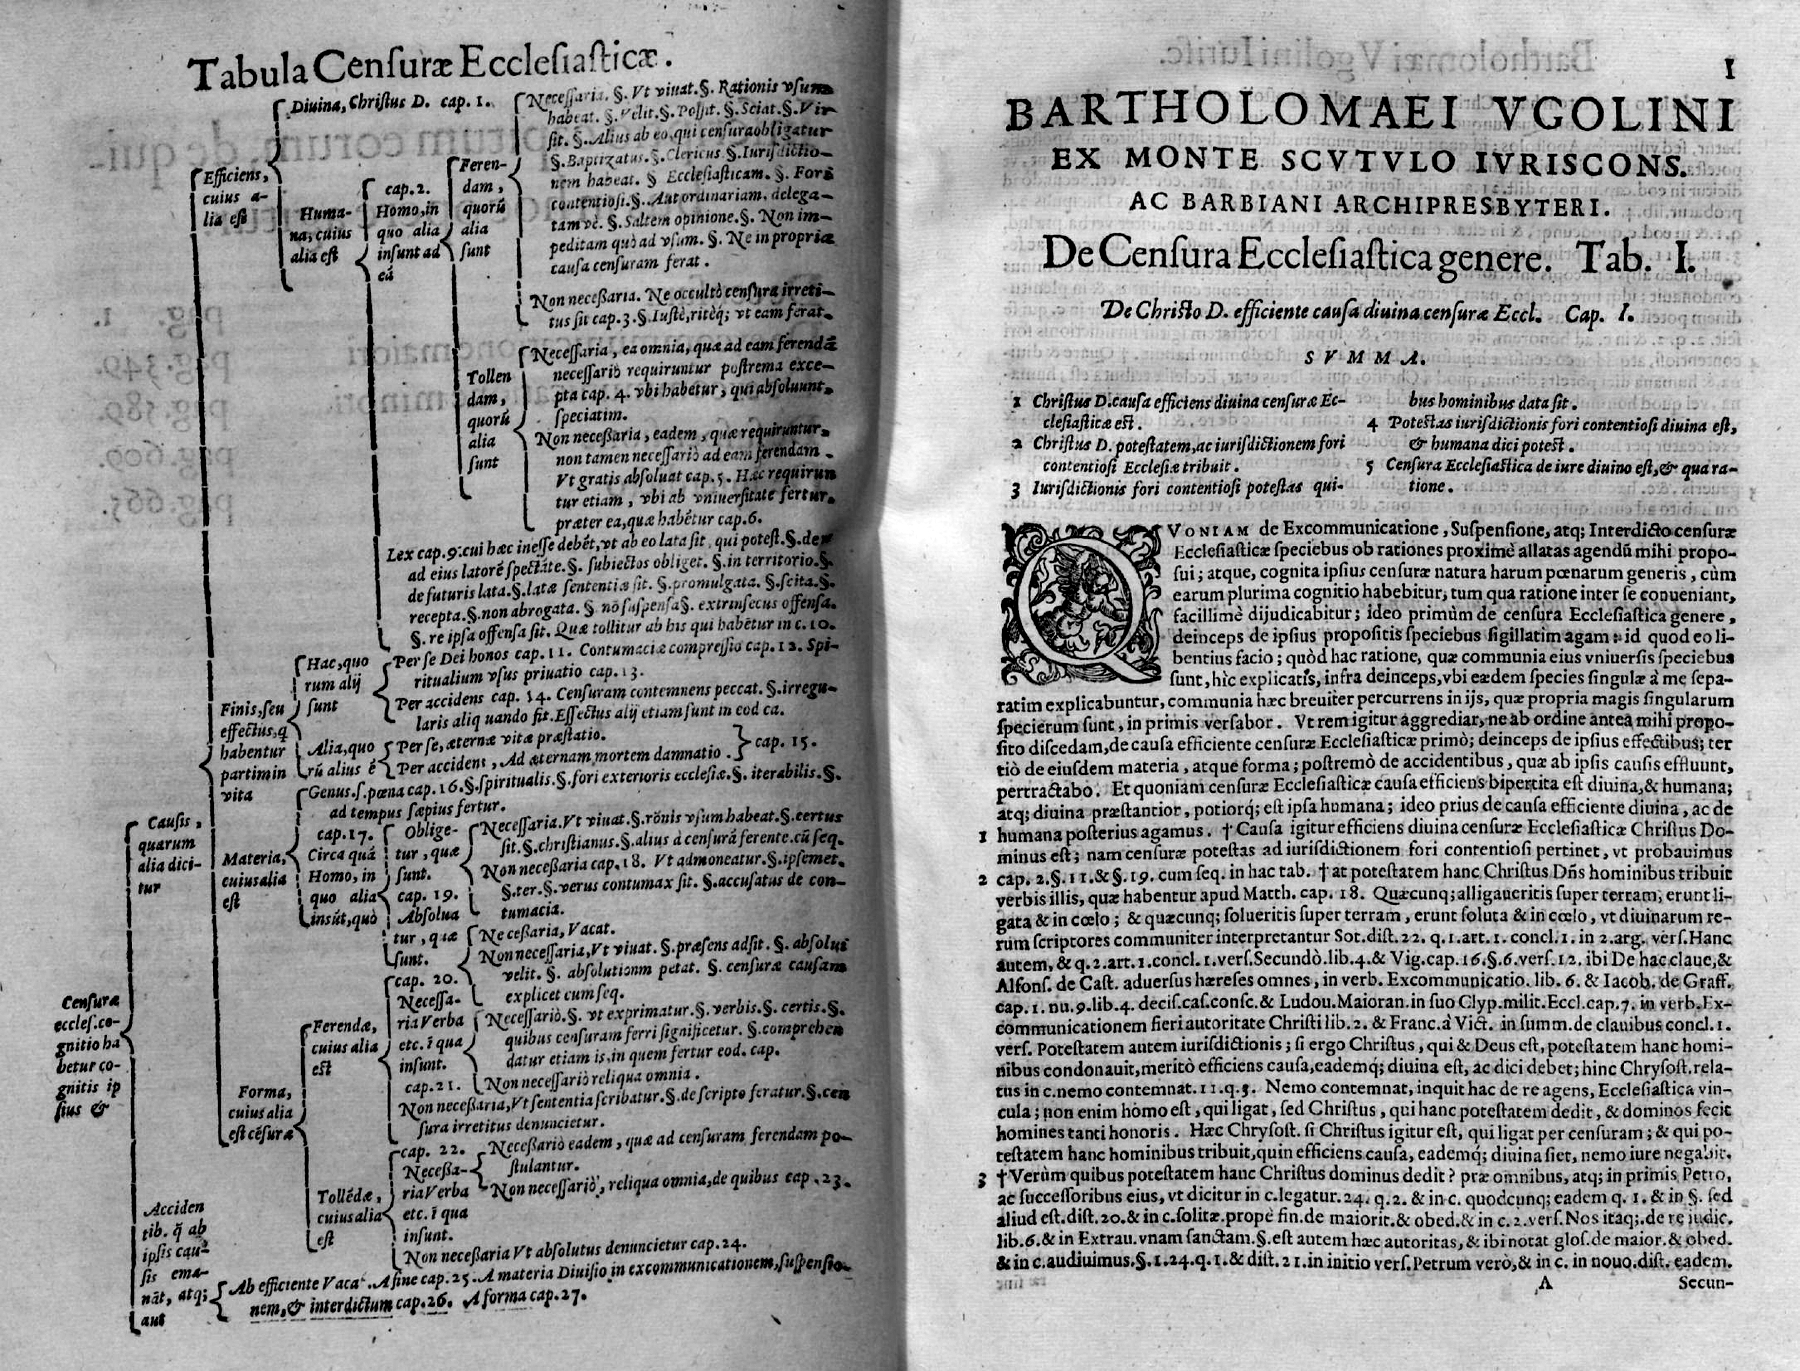 Tabula Cenſuræ Eccleſiaſticæ.
Diuina, Chriſtus D. cap. 1.
Efficiens,
cuius a-
lia eſt
Huma-
na, cuius
alia eſt
cap. 2.
Homo, in
quo alia
inſunt ad
eá
Feren-
dam,
quorũ
alia
ſunt
Neceſſaria. §. Vt viuat. §. Rationis vſum
habeat. §. Velit. §. Poſſit. §. Sciat. §. Vir
ſit. §. Alius ab eo, qui cenſura obligatur
§. Baptizatus. §. Clericus §. Iuriſdictio-
nem habeat. § Eccleſiaſticam. §. Fori
contentioſi. §. Aut ordinariam, delega-
tam vè. §. Saltem opinione. §. Non im-
peditam quò ad vſum. §. Ne in propria
cauſa cenſuram ferat.
Non neceßaria. Ne occultò cenſura irreti-
tus ſit cap. 3. §. Iuſtè, ritèq; vt eam ferat.
Tollen
dam,
quorũ
alia
ſunt
Neceſſaria, ea omnia, quæ ad eam ferendã
neceſſariò requiruntur poſtrema exce-
pta cap. 4. vbi habetur, qui abſoluunt
ſpeciatim.
Non neceßaria, eadem, quæ requiruntur
non tamen neceſſariò ad eam ferendam.
Vt gratis abſoluat cap. 5. Hæc requirun
tur etiam, vbi ab vniuerſitate fertur,
præter ea, quæ habẽtur cap. 6.
Lex cap. 9. cui hæc ineſſe debẽt, vt ab eo lata ſit, qui poteſt. §. de
ad eius latorẽ ſpectãte. §. ſubiectos obliget. §. in territorio. §.
de futuris lata. §. latæ ſententiæ ſit. §. promulgata. §. ſcita. §.
recepta. §. non abrogata. §. nõ ſuſpenſa §. extrinſecus offenſa.
§. re ipſa offenſa ſit. Quæ tollitur ab his qui habẽtur in c. 10.
Finis, ſeu
effectus, q̃
habentur
partim in
vita
Hac, quo
rum alij
ſunt
Per ſe Dei honos cap. 11. Contumaciæ compreſſio cap. 12. Spi-
ritualium vſus priuatio cap. 13.
Per accidens cap. 14. Cenſuram contemnens peccat. §. irregu-
laris aliquando fit. Effectus alij etiam ſunt in eod ca.
Alia, quo
rũ alius ẽ
Per ſe, æternæ vitæ præſtatio.
Per accidens, Ad æternam mortem damnatio.
cap. 15.
Materia,
cuius alia
eſt
Genus. ſ. pœna cap. 16. §. ſpiritualis. §. fori exterioris eccleſiæ. §. iterabilis. §.
ad tempus ſæpius fertur.
cap. 17.
Circa quã
Homo, in
quo alia
inſũt, quò
Oblige-
tur, quæ
ſunt.
Neceſſaria. Vt viuat. §. rõnis vſum habeat. §. certus
ſit. §. chriſtianus. §. alius à cenſurã ferente. cũ ſeq.
Non neceſſaria cap. 18. Vt admoneatur. §. ipſemet.
§. ter. §. verus contumax ſit. §. accuſatus de con-
tumacia.
cap. 19.
Abſolua
tur, quæ
ſunt.
Neceßaria, Vacat.
Non neceſſaria, Vt viuat. §. præſens adſit. §. abſolui
velit. §. abſolutionm petat. §. cenſuræ cauſam
explicet cum ſeq.
Forma,
cuius alia
eſt cẽſuræ
Ferendæ,
cuius alia
eſt
cap. 20.
Neceſſa-
ria Verba
etc. ĩ qua
inſunt.
cap. 21.
Neceſſariò. §. vt exprimatur. §. verbis. §. certis. §.
quibus cenſuram ferri ſignificetur. §. comprehen
datur etiam is, in quem fertur eod. cap.
Non neceſſariò reliqua omnia.
Non neceſſaria, Vt ſententia ſcribatur. §. de ſcripto feratur. §. cen
ſura irretitus denuncietur.
Tollẽdæ,
cuius alia
eſt
cap. 22.
Neceßa-
ria Verba
etc. ĩ qua
inſunt.
Neceſſariò eadem, quæ ad cenſuram ferendam po-
ſtulantur.
Non neceſſariò, reliqua omnia, de quibus cap. 23.
Non neceſſaria Vt abſolutus denuncietur cap. 24.
Cauſis,
quarum
alia dici-
tur
Cenſuræ
eccleſ. co-
gnitio ha
betur co-
gnitis ip
ſius &
Acciden
tib. q̃ ab
ipſis cau-
ſis ema-
nãt, atq;
aut
Ab efficiente Vacat. A fine cap. 25. A materia Diuiſio in excommunicationem, ſuſpenſio-
nem, & interdictum cap. 26. A forma cap. 27.
1
BARTHOLOMAEI VGOLINI
EX MONTE SCVTVLO IVRISCONS.
AC BARBIANI ARCHIPRESBYTERI.
De Cenſura Eccleſiaſtica genere. Tab. I.
De Chriſto D. efficiente cauſa diuina cenſuræ Eccl. Cap. I.
SVMMA.
1 Chriſtus D. cauſa efficiens diuina cenſuræ Ec-
cleſiaſticæ eſt.
2 Chriſtus D. poteſtatem, ac iuriſdictionem fori
contentioſi Eccleſiæ tribuit.
3 Iuriſdictionis fori contentioſi poteſtas qui-
bus hominibus data ſit.
4 Poteſtas iuriſdictionis fori contentioſi diuina eſt,
& humana dici poteſt.
5 Cenſura Eccleſiaſtica de iure diuino eſt, & qua ra-
tione.
QVONIAM de Excommunicatione, Suſpenſione, atq; Interdicto cenſuræ
Eccleſiaſticæ ſpeciebus ob rationes proximè allatas agendũ mihi propo-
ſui; atque, cognita ipſius cenſuræ natura harum pœnarum generis, cùm
earum plurima cognitio habebitur, tum qua ratione inter ſe conueniant,
facillimè dijudicabitur; ideo primùm de cenſura Eccleſiaſtica genere,
deinceps de ipſius propoſitis ſpeciebus ſigillatim agam: id quod eo li-
bentius facio; quòd hac ratione, quæ communia eius vniuerſis ſpeciebus
ſunt, hìc explicatis, infra deinceps, vbi eædem ſpecies ſingulæ à me ſepa-
ratim explicabuntur, communia hæc breuiter percurrens in ijs, quæ propria magis ſingularum
ſpecierum ſunt, in primis verſabor. Vt rem igitur aggrediar, ne ab ordine antea mihi propo-
ſito diſcedam, de cauſa efficiente cenſuræ Eccleſiaſticæ primò; deinceps de ipſius effectibus; ter
tiò de eiuſdem materia, atque forma; poſtremò de accidentibus, quæ ab ipſis cauſis effluunt,
pertractabo. Et quoniam cenſuræ Eccleſiaſticæ cauſa efficiens bipertita eſt diuina, & humana;
atq; diuina præſtantior, potiorq; eſt ipſa humana; ideo prius de cauſa efficiente diuina, ac de
1 humana poſterius agamus. † Cauſa igitur efficiens diuina cenſuræ Eccleſiaſticæ Chriſtus Do-
minus eſt; nam cenſuræ poteſtas ad iuriſdictionem fori contentioſi pertinet, vt probauimus
2 cap. 2. §. 11. & §. 19. cum ſeq. in hac tab. † at poteſtatem hanc Chriſtus Dñs hominibus tribuit
verbis illis, quæ habentur apud Matth. cap. 18. Quæcunq; alligaueritis ſuper terram, erunt li-
gata & in cœlo; & quæcunq; ſolueritis ſuper terram, erunt ſoluta & in cœlo, vt diuinarum re-
rum ſcriptores communiter interpretantur Sot. diſt. 22. q. 1. art. 1. concl. 1. in 2. arg. verſ. Hanc
autem, & q. 2. art. 1. concl. 1. verſ. Secundò. lib. 4. & Vig. cap. 16. §. 6. verſ. 12. ibi De hac claue, &
Alfonſ. de Caſt. aduerſus hæreſes omnes, in verb. Excommunicatio. lib. 6. & Iacob. de Graff.
cap. 1. nu. 9. lib. 4. deciſ. caſ. conſc. & Ludou. Maioran. in ſuo Clyp. milit. Eccl. cap. 7. in verb. Ex-
communicationem fieri autoritate Chriſti lib. 2. & Franc. à Vict. in ſumm. de clauibus concl. 1.
verſ. Poteſtatem autem iuriſdictionis; ſi ergo Chriſtus, qui & Deus eſt, poteſtatem hanc homi-
nibus condonauit, meritò efficiens cauſa, eademq; diuina eſt, ac dici debet; hinc Chryſoſt. rela-
tus in c. nemo contemnat. 11. q. 3. Nemo contemnat, inquit hac de re agens, Eccleſiaſtica vin-
cula; non enim homo eſt, qui ligat, ſed Chriſtus, qui hanc poteſtatem dedit, & dominos fecit
homines tanti honoris. Hæc Chryſoſt. ſi Chriſtus igitur eſt, qui ligat per cenſuram; & qui po-
teſtatem hanc hominibus tribuit, quin efficiens cauſa, eademq; diuina ſiet, nemo iure negabit.
3 † Verùm quibus poteſtatem hanc Chriſtus dominus dedit? præ omnibus, atq; in primis Petro,
ac ſucceſſoribus eius, vt dicitur in c. legatur. 24. q. 2. & in c. quodcunq; eadem q. 1. & in §. ſed
aliud eſt. diſt. 20. & in c. ſolitæ. propè fin. de maiorit. & obed. & in c. 2. verſ. Nos itaq; de re iudic.
lib. 6. & in Extrau. vnam ſanctam. §. eſt autem hæc autoritas, & ibi notat gloſ. de maior. & obed.
& in c. audiuimus. §. 1. 24. q. 1. & diſt. 21. in initio verſ. Petrum verò, & in c. in nouo. diſt. eadem.
A Secun-